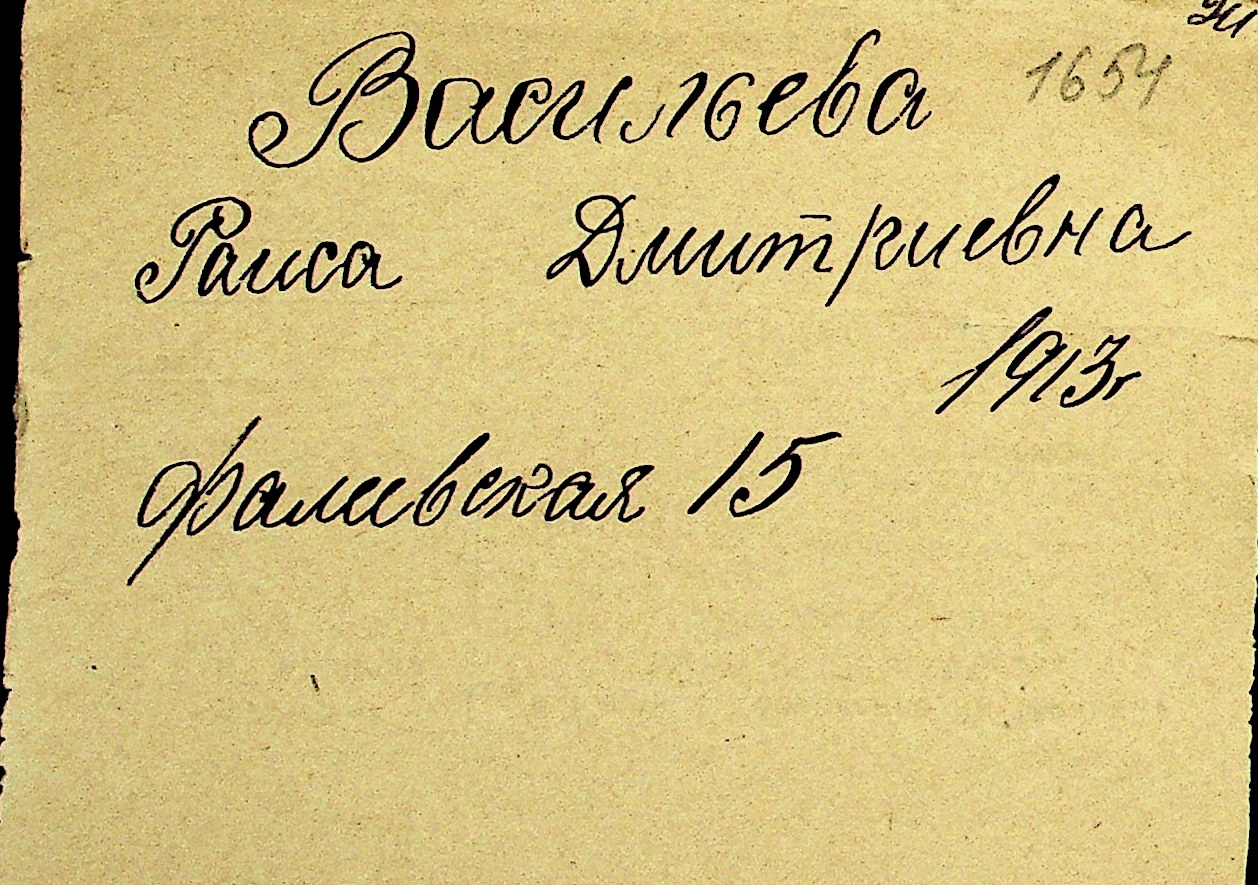 Васильева 1654
Раиса Дмитриевна
1913г
фалеевская 15